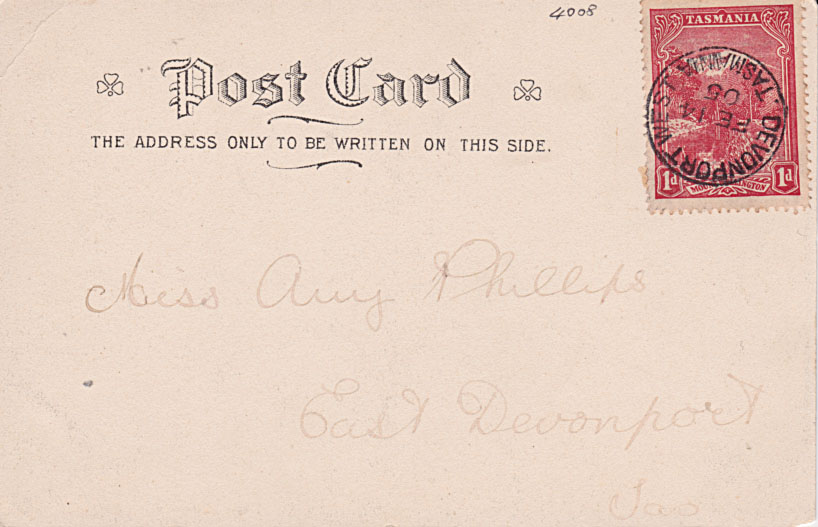 4008
TASMANIA
Post Card
THE ADDRESS ONLY TO BE WRITTEN ON THIS SIDE.
DEVONPORT WEST
TASMANIA
FE 14
05
1d 1d
Miss Amy Phillips
East Devonport
Tas